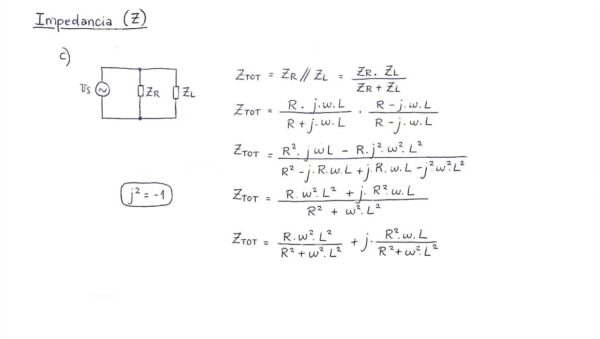 Impedancia (Z)
c)
Vs
ZR
ZL
ZTOT = ZR // ZL = ZR . ZL / ZR + ZL
ZTOT = R . j.w.L / R + j.w.L . R - j.w.L / R - j.w.L
ZTOT = R². jwL - R.j².w².L² / R² - j.R.w.L + j.R.w.L - j².w².L²
j² = -1
ZTOT = R.w².L² + j.R².w.L / R² + w².L²
ZTOT = R.w².L² / R² + w².L² + j. R².w.L / R² + w².L²